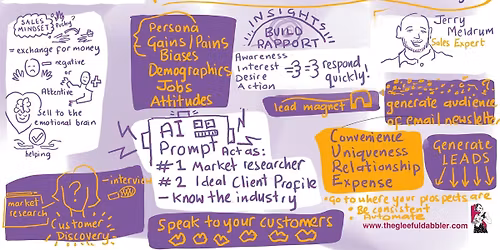 SALES
MINDSET
Pushy
= exchange for money
negative
or
Attentive
Sell to the
emotional brain
helping
market
research
interview
Customer
Discovery
Persona
Gains/Pains
Biases
Demographics
Jobs
Attitudes
AI
Prompt Act as:
#1 Market researcher
#2 Ideal Client Profile
- know the industry
speak to your customers
INSIGHTS
BUILD
RAPPORT
Awareness
Interest
Desire
Action
respond
quickly!
lead magnet
Jerry
Meidrum
Sales Expert
generate audience
email newsletter
Convenience
Uniqueness
Relationship
Expense
GENERATE
LEADS
* Go to where your prospects are
* Be consistent
Automate
www.thegleefuldabbler.com